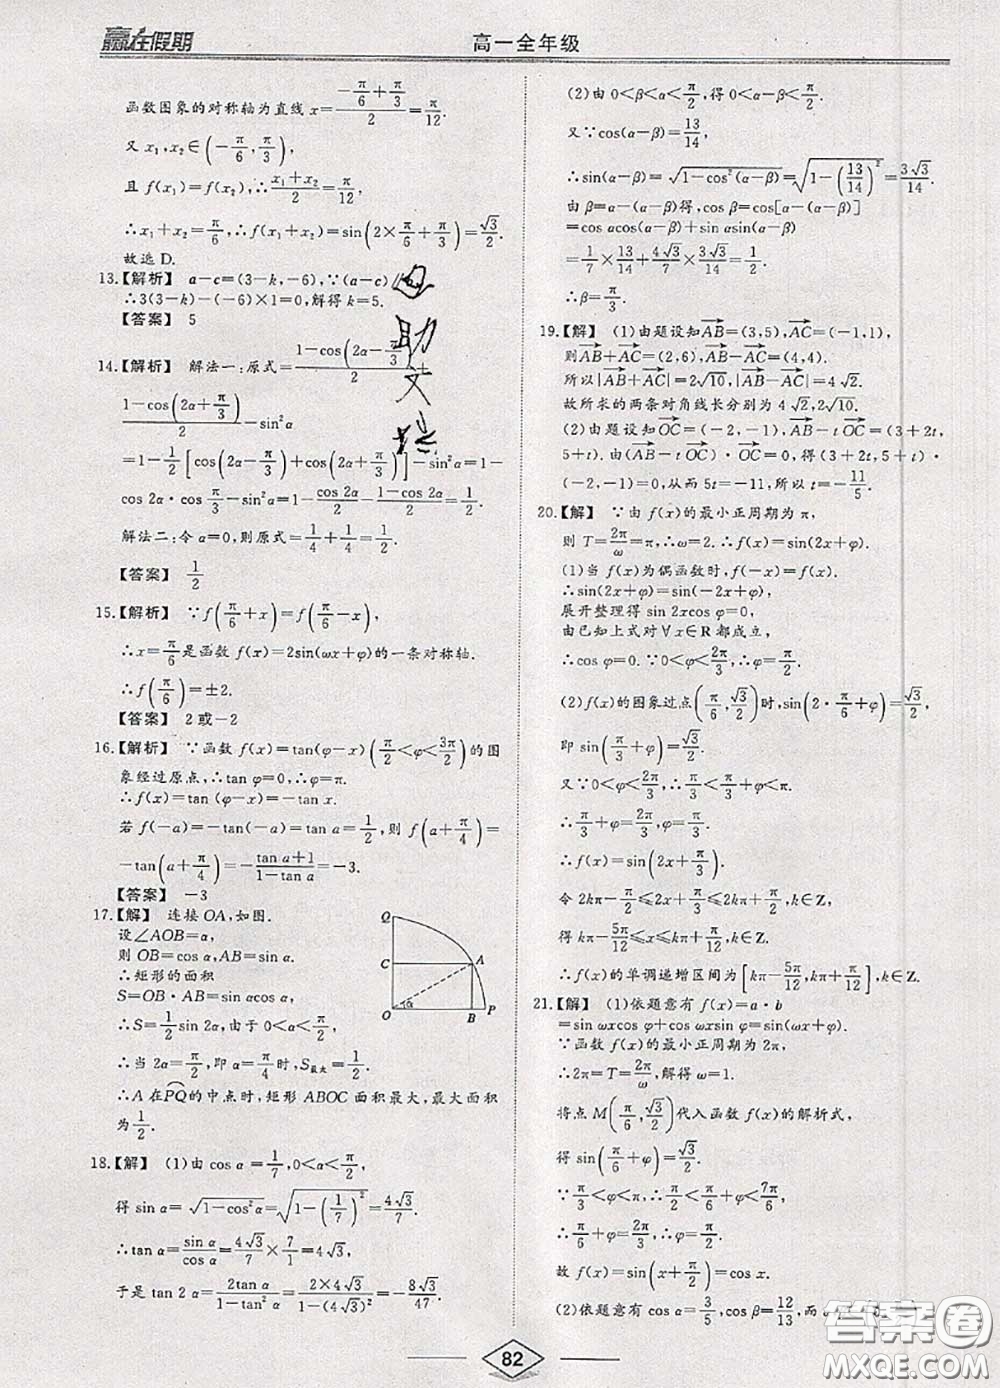 赢在假期
高一全年级
函数图象的对称轴为直线 x=(-π/6+π/3)/2=π/12.
又 x₁,x₂∈(-π/6,π/3),
且 f(x₁)=f(x₂),∴(x₁+x₂)/2=π/12,
∴x₁+x₂=π/6,∴f(x₁+x₂)=sin(2×π/6+π/3)=√3/2.
故选 D.
13.【解析】 a-c=(3-k,-6),∵(a-c)∥b
∴3(3-k)-(-6)×1=0,解得 k=5.
【答案】 5
14.【解析】 解法一:原式=(1-cos(2α-π/3))/2+
(1-cos(2α+π/3))/2-sin²α
=1-1/2[cos(2α-π/3)+cos(2α+π/3)]-sin²α=1-
cos 2α·cos π/3-sin²α=1-cos 2α/2-(1-cos 2α)/2=1/2.
解法二:令 α=0,则原式=1/4+1/4=1/2.
【答案】 1/2
15.【解析】 ∵f(π/6+x)=f(π/6-x),
∴x=π/6是函数 f(x)=2sin(ωx+φ)的一条对称轴.
∴f(π/6)=±2.
【答案】 2或-2
16.【解析】 ∵函数 f(x)=tan(φ-x)(π/2<φ<3π/2)的图
象经过原点,∴tan φ=0.
∴f(x)=tan (φ-x)=-tan x.
若 f(-a)=-tan(-a)=tan a=1/2,则 f(a+π/4)=
-tan(a+π/4)=-(tan a+1)/(1-tan a)=-3.
【答案】 -3
17.【解】 连接 OA,如图.
设∠AOB=α,
则 OB=cos α,AB=sin α.
∴矩形的面积
S=OB·AB=sin αcos α.
∴S=1/2sin 2α,由于 0<α<π/2,
∴当 2α=π/2,即 α=π/4时,S最大=1/2.
∴A 在PQ的中点时,矩形 ABOC 面积最大,最大面积
为1/2.
Q
C
A
O
α
B
P
18.【解】 (1)由 cos α=1/7,0<α<π/2,
得 sin α=√(1-cos²α)=√(1-(1/7)²)=4√3/7.
∴tan α=sin α/cos α=4√3/7×7/1=4√3,
于是 tan 2α=2tan α/(1-tan²α)=(2×4√3)/(1-(4√3)²)=-8√3/47.
(2)由 0<β<α<π/2,得 0<α-β<π/2.
又∵cos(α-β)=13/14,
∴sin(α-β)=√(1-cos²(α-β))=√(1-(13/14)²)=3√3/14.
由 β=α-(α-β)得,cos β=cos[α-(α-β)]
=cos αcos(α-β)+sin αsin(α-β)
=1/7×13/14+4√3/7×3√3/14=1/2.
∴β=π/3.
19.【解】 (1)由题设知AB=(3,5),AC=(-1,1),
则AB+AC=(2,6),AB-AC=(4,4).
所以|AB+AC|=2√10,|AB-AC|=4√2.
故所求的两条对角线长分别为 4√2,2√10.
(2)由题设知OC=(-2,-1),AB-tOC=(3+2t,
5+t).由(AB-tOC)·OC=0,得(3+2t,5+t)·
(-2,-1)=0,从而 5t=-11,所以 t=-11/5.
20.【解】 ∵由 f(x)的最小正周期为 π,
则 T=2π/ω=π,∴ω=2.∴f(x)=sin(2x+φ).
(1)当 f(x)为偶函数时,f(-x)=f(x).
∴sin(2x+φ)=sin(-2x+φ),
展开整理得 sin 2xcos φ=0,
由已知上式对∀x∈R 都成立,
∴cos φ=0.∵0<φ<2π/3,∴φ=π/2.
(2)f(x)的图象过点(π/6,√3/2)时,sin(2·π/6+φ)=√3/2,
即 sin(π/3+φ)=√3/2.
又∵0<φ<2π/3,∴π/3<π/3+φ<π.
∴π/3+φ=2π/3,φ=π/3.
∴f(x)=sin(2x+π/3).
令 2kπ-π/2≤2x+π/3≤2kπ+π/2,k∈Z,
得 kπ-5π/12≤x≤kπ+π/12,k∈Z.
∴f(x)的单调递增区间为[kπ-5π/12,kπ+π/12],k∈Z.
21.【解】 (1)依题意有 f(x)=a·b
=sin ωxcos φ+cos ωxsin φ=sin(ωx+φ).
∵函数 f(x)的最小正周期为 2π,
∴2π=T=2π/ω,解得 ω=1.
将点 M(π/6,√3/2)代入函数 f(x)的解析式,
得 sin(π/6+φ)=√3/2.
∵π/3<φ<π,∴π/2<π/6+φ<7π/6.
∴π/6+φ=2π/3,∴φ=π/2.
故 f(x)=sin(x+π/2)=cos x.
(2)依题意有 cos α=3/5,cos β=12/13,而 α
82
答案圈
MXQE.COM